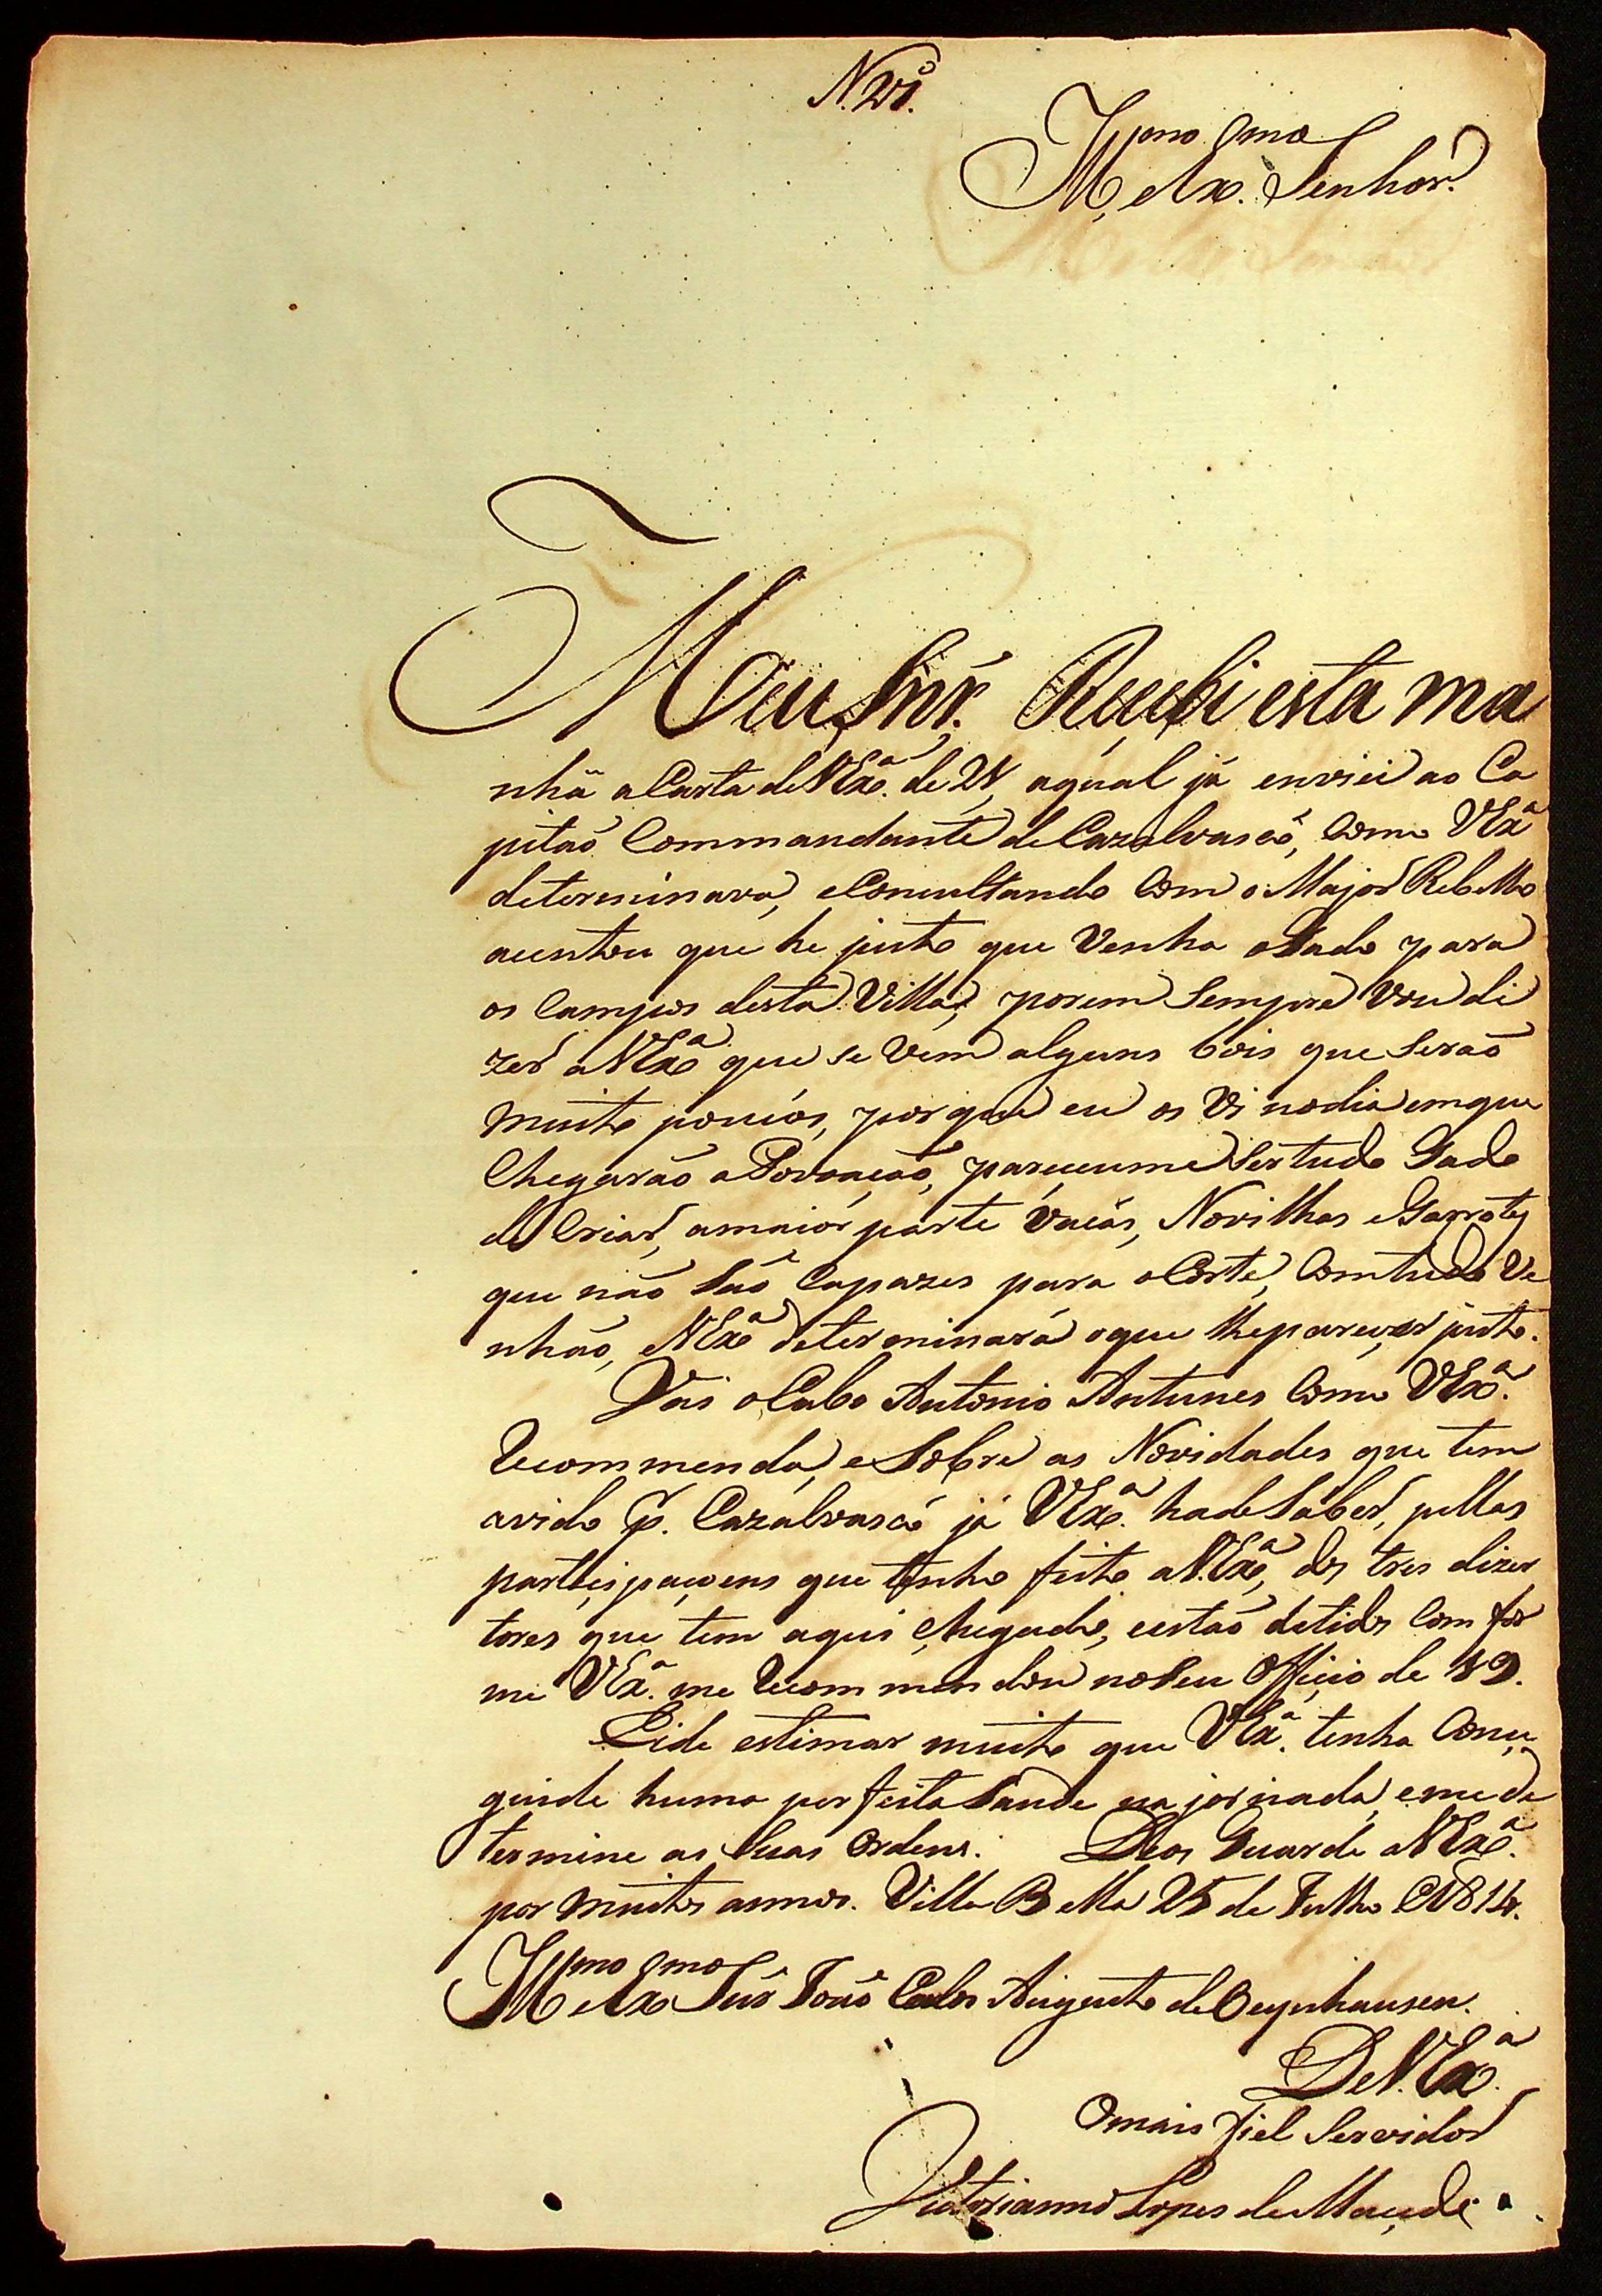 Illmo. e Exmo. Senhor.
Meu Snr. Recebi esta ma
nhã a Carta de V Exa. de 21, a qual já enviei ao Ca
pitaõ Commandante de Cazalvasco, como V Exa.
determinava, e Concultando Com o Major Rebello
acentou que he justo que Venha o Gado para
os Campos desta Villa, porem Sempre Vou di
zer a V Exa. que se Vem alguns bois que Seraõ
muito poucos, por que eu os Vi no dia em que
Chegaraõ a Povoaçaõ, pareceume Ser tudo Gado
de Criar, a maior parte Vacas, Novilhas e Garrotes
que não Saõ Capazes para o Corte, Com tudo Ve
nhaõ, e V Exa. determinará o que lhe parecer justo.
Vai o Cabo Antonio Antunes Como V Exa.
recommenda, e Sobre as Novidades que tem
avido pr. Cazalvasco já V Exa. hade Saber, pellas
parteispaçoens que tenho feito a V. Exa., dos tres dizer
tores que tem aqui chegado, e estaõ detidos Com for
me V Exa. me recommendou no Seu Officio de 19.
Eide estimar muito que V Exa. tenha Conce
guido huma perfeita Saude na jornada, e me de
termine as Suas Ordens. Deos Guarde a V Exa.
por muitos annos. Villa Bella 25 de Julho 1814.
Illmo. e Exmo. Snr. Joaõ Carlos Augusto de Oeynhausen.
De V. Exa.
O mais fiel Servidor
Victorianno Lopes de Macedo